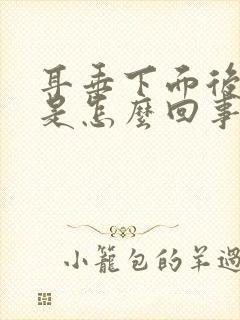 耳垂下而後
是怎麼回事
小籠包的羊過